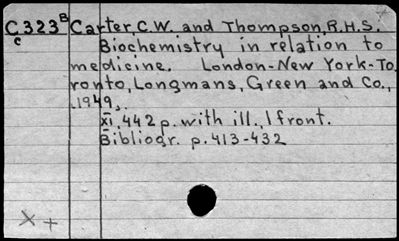 C323ᴮ Carter, C.W. and Thompson, R.H.S.
c Biochemistry in relation to
medicine. London-New York-To
ronto, Longmans, Green and Co.,
1949.
XI, 442 p. with ill., 1 front.
Bibliogr. p. 413-432
X +